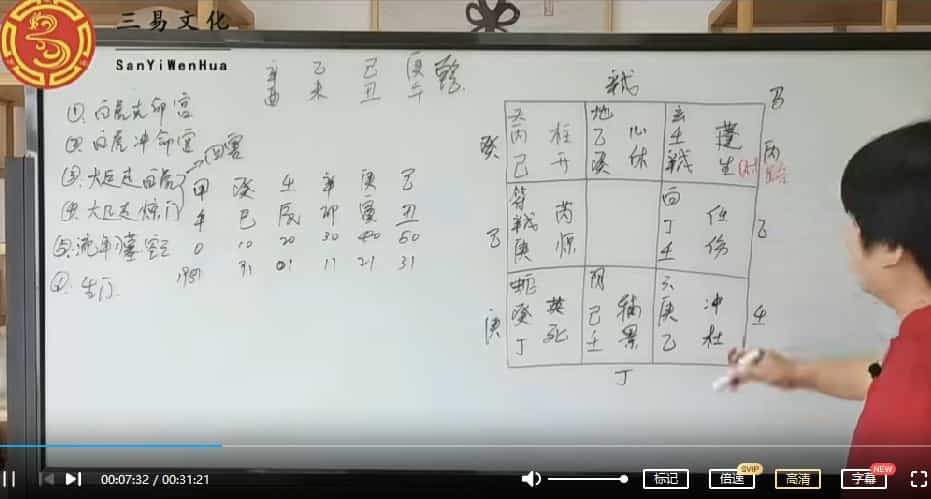 三易文化
SanYiWenHua
辛 乙 己 庚 乾
酉 未 丑 午
①.白虎走命宫
②白虎冲命宫
③.大运走白虎
④.大运走惊门
⑤.流年
空亡
生门
甲 癸 壬 辛 庚 己
午 巳 辰 卯 寅 丑
0 10 20 30 40 50
1981 91 01 11 21 31
马
癸
天
丙 柱
己 开
地
乙 心
癸 休
玄
壬 蓬
生
丙
乙
符
芮
庚 惊
白
丁 任
壬 伤
乙
庚
蛇
癸 英
丁 死
阴
己 辅
壬 景
六
庚 冲
乙 杜
壬
丁
00:07:32 / 00:31:21
标记
倍速
SVIP
高清
字幕
NEW